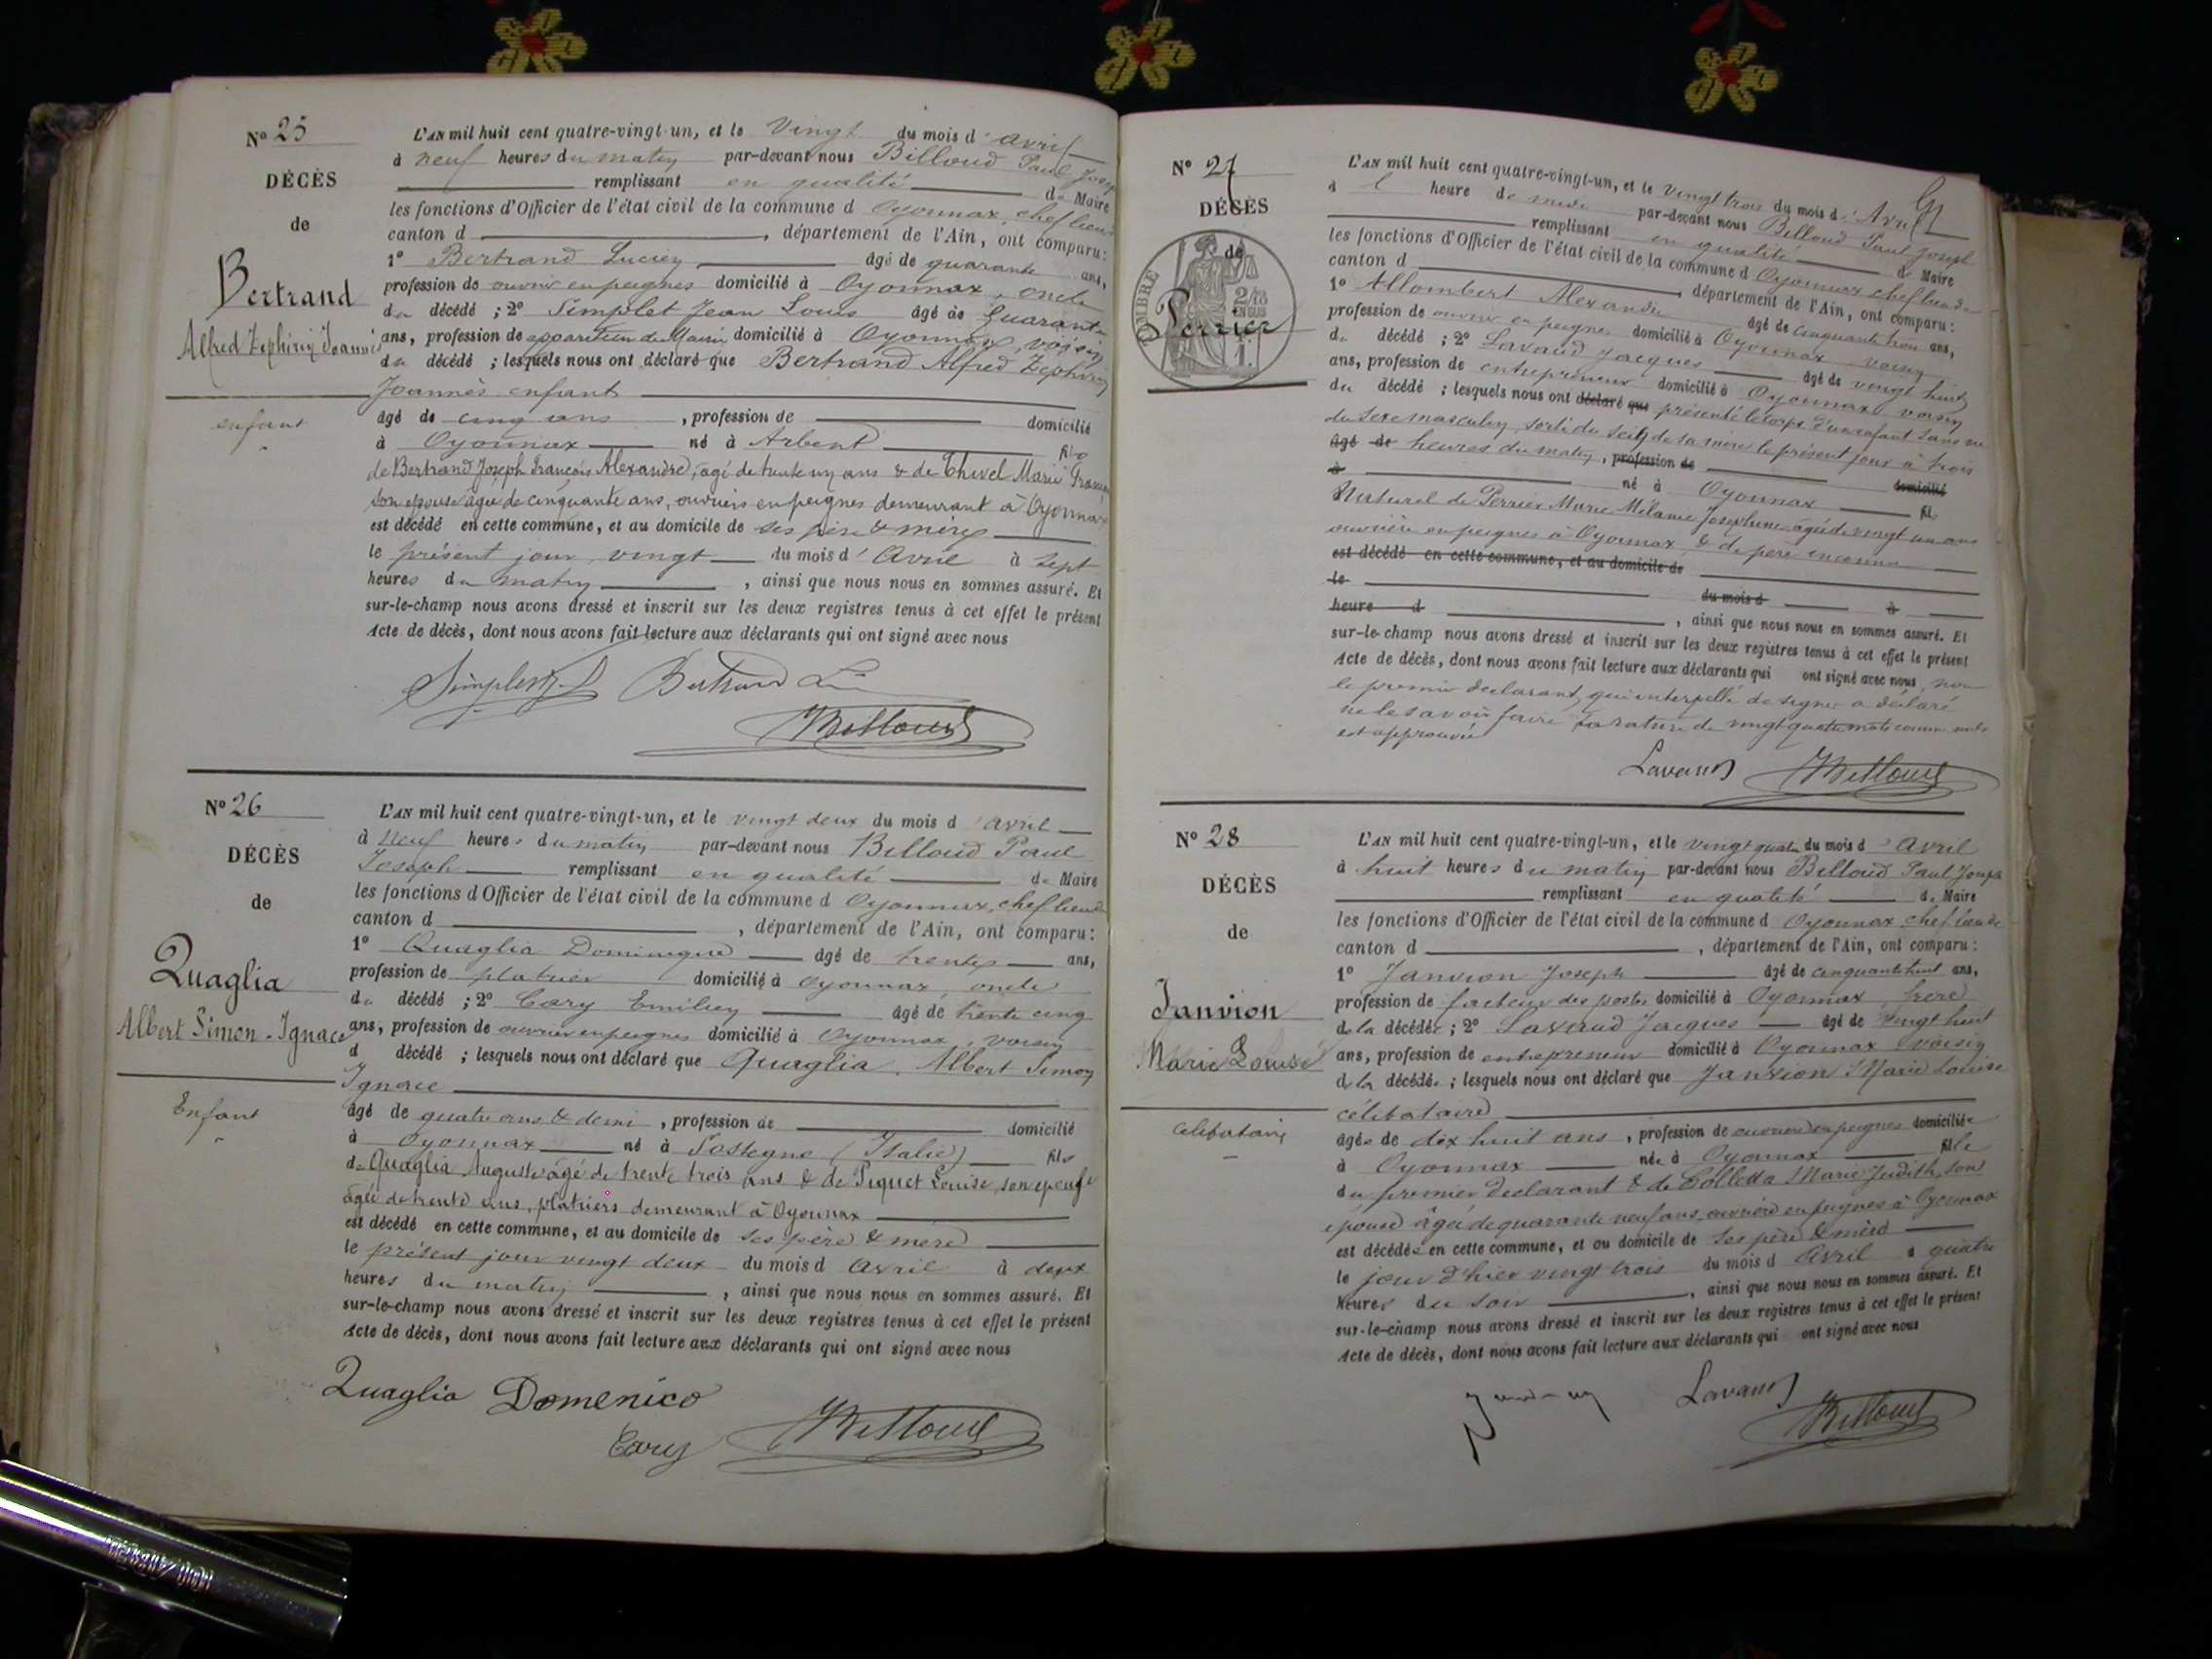 N° 25
DÉCÈS
de
Bertrand
Alfred Zephirin Joannès
enfant
L'AN mil huit cent quatre-vingt-un, et le Vingt du mois d'avril
à neuf heures du matin par-devant nous Billoud Paul Joseph
remplissant en qualité de Maire
les fonctions d'Officier de l'état civil de la commune d Oyonnax, chef lieu
canton d , département de l'Ain, ont comparu:
1° Bertrand Lucien âgé de quarante ans,
profession de ouvrier en peignes domicilié à Oyonnax, oncle
du décédé ; 2° Simplet Jean Louis âgé de quarante
ans, profession de appariteur de Mairie domicilié à Oyonnax, voisin
du décédé ; lesquels nous ont déclaré que Bertrand Alfred Zephirin
Joannès enfant
âgé de cinq ans , profession de domicilié
à Oyonnax né à Arbent fils
de Bertrand Joseph François Alexandre, âgé de trente un ans & de Thevel Marie
son épouse âgée de cinquante ans, ouvriers en peignes demeurant à Oyonnax
est décédé en cette commune, et au domicile de ses père & mère
le présent jour vingt du mois d'Avril à sept
heures du matin , ainsi que nous nous en sommes assuré. Et
sur-le-champ nous avons dressé et inscrit sur les deux registres tenus à cet effet le présent
Acte de décès, dont nous avons fait lecture aux déclarants qui ont signé avec nous
Simplet Bertrand
Billoud
N° 26
DÉCÈS
de
Quaglia
Albert Simon-Ignace
Enfant
L'AN mil huit cent quatre-vingt-un, et le vingt deux du mois d'avril
à neuf heures du matin par-devant nous Billoud Paul
Joseph remplissant en qualité de Maire
les fonctions d'Officier de l'état civil de la commune d Oyonnax, chef lieu de
canton d , département de l'Ain, ont comparu:
1° Quaglia Dominique âgé de trente ans,
profession de platrier domicilié à Oyonnax, oncle
du décédé ; 2° Cary Emilien âgé de trente cinq
ans, profession de ouvrier en peignes domicilié à Oyonnax, voisin
d décédé ; lesquels nous ont déclaré que Quaglia, Albert Simon
Ignace
âgé de quatre ans & demi , profession de domicilié
à Oyonnax né à Sostegno (Italie) fils
de Quaglia Auguste âgé de trente trois ans & de Piquet Louise, son épouse
âgée de trente ans, platriers demeurant à Oyonnax
est décédé en cette commune, et au domicile de ses père & mère
le présent jour vingt deux du mois d Avril à deux
heures du matin , ainsi que nous nous en sommes assuré. Et
sur-le-champ nous avons dressé et inscrit sur les deux registres tenus à cet effet le présent
Acte de décès, dont nous avons fait lecture aux déclarants qui ont signé avec nous
Quaglia Domenico
Cary Billoud
N° 27
DÉCÈS
de
TIMBRE
2/10 EN SUS
Perrier
L'AN mil huit cent quatre-vingt-un, et le vingt trois du mois d'Avril
à 1 heure de midi par-devant nous Billoud Paul Joseph
remplissant en qualité de Maire
les fonctions d'Officier de l'état civil de la commune d Oyonnax chef lieu de
canton d , département de l'Ain, ont comparu:
1° Allombert Alexandre âgé de cinquante trois ans,
profession de ouvrier en peignes domicilié à Oyonnax voisin
du décédé ; 2° Lavaud Jacques âgé de vingt huit
ans, profession de entrepreneur domicilié à Oyonnax voisin
du décédé ; lesquels nous ont déclaré que présenté le corps d'un enfant sans vie
du sexe masculin, sorti du sein de sa mère le présent jour à trois
âgé de heures du matin, profession de
à né à Oyonnax domicilié fils
Naturel de Perrier Marie Mélanie Joséphine âgée de vingt un ans
ouvrière en peignes à Oyonnax & de père inconnu
est décédé en cette commune, et au domicile de
le du mois d à
heure d , ainsi que nous nous en sommes assuré. Et
sur-le-champ nous avons dressé et inscrit sur les deux registres tenus à cet effet le présent
Acte de décès, dont nous avons fait lecture aux déclarants qui ont signé avec nous, non
le premier déclarant, qui interpellé de signer a déclaré
ne le savoir faire la rature de vingt quatre mots comme nuls
est approuvée
Lavaud Billoud
N° 28
DÉCÈS
de
Janvion
Marie Louise
célibataire
L'AN mil huit cent quatre-vingt-un, et le vingt quatre du mois d'avril
à huit heures du matin par-devant nous Billoud Paul Joseph
remplissant en qualité de Maire
les fonctions d'Officier de l'état civil de la commune d Oyonnax chef lieu de
canton d , département de l'Ain, ont comparu:
1° Janvion Joseph âgé de cinquante huit ans,
profession de facteur des postes domicilié à Oyonnax, père
de la décédée ; 2° Lavaud Jacques âgé de vingt huit
ans, profession de entrepreneur domicilié à Oyonnax voisin
de la décédée ; lesquels nous ont déclaré que Janvion Marie Louise
célibataire
âgée de dix huit ans , profession de ouvrière en peignes domiciliée
à Oyonnax née à Oyonnax fille
du premier déclarant & de Colletta Marie Judith, son
épouse âgée de quarante neuf ans, ouvrière en peignes à Oyonnax
est décédée en cette commune, et au domicile de ses père & mère
le jour d'hier vingt trois du mois d Avril à quatre
heures du soir , ainsi que nous nous en sommes assuré. Et
sur-le-champ nous avons dressé et inscrit sur les deux registres tenus à cet effet le présent
Acte de décès, dont nous avons fait lecture aux déclarants qui ont signé avec nous
Lavaud
Billoud